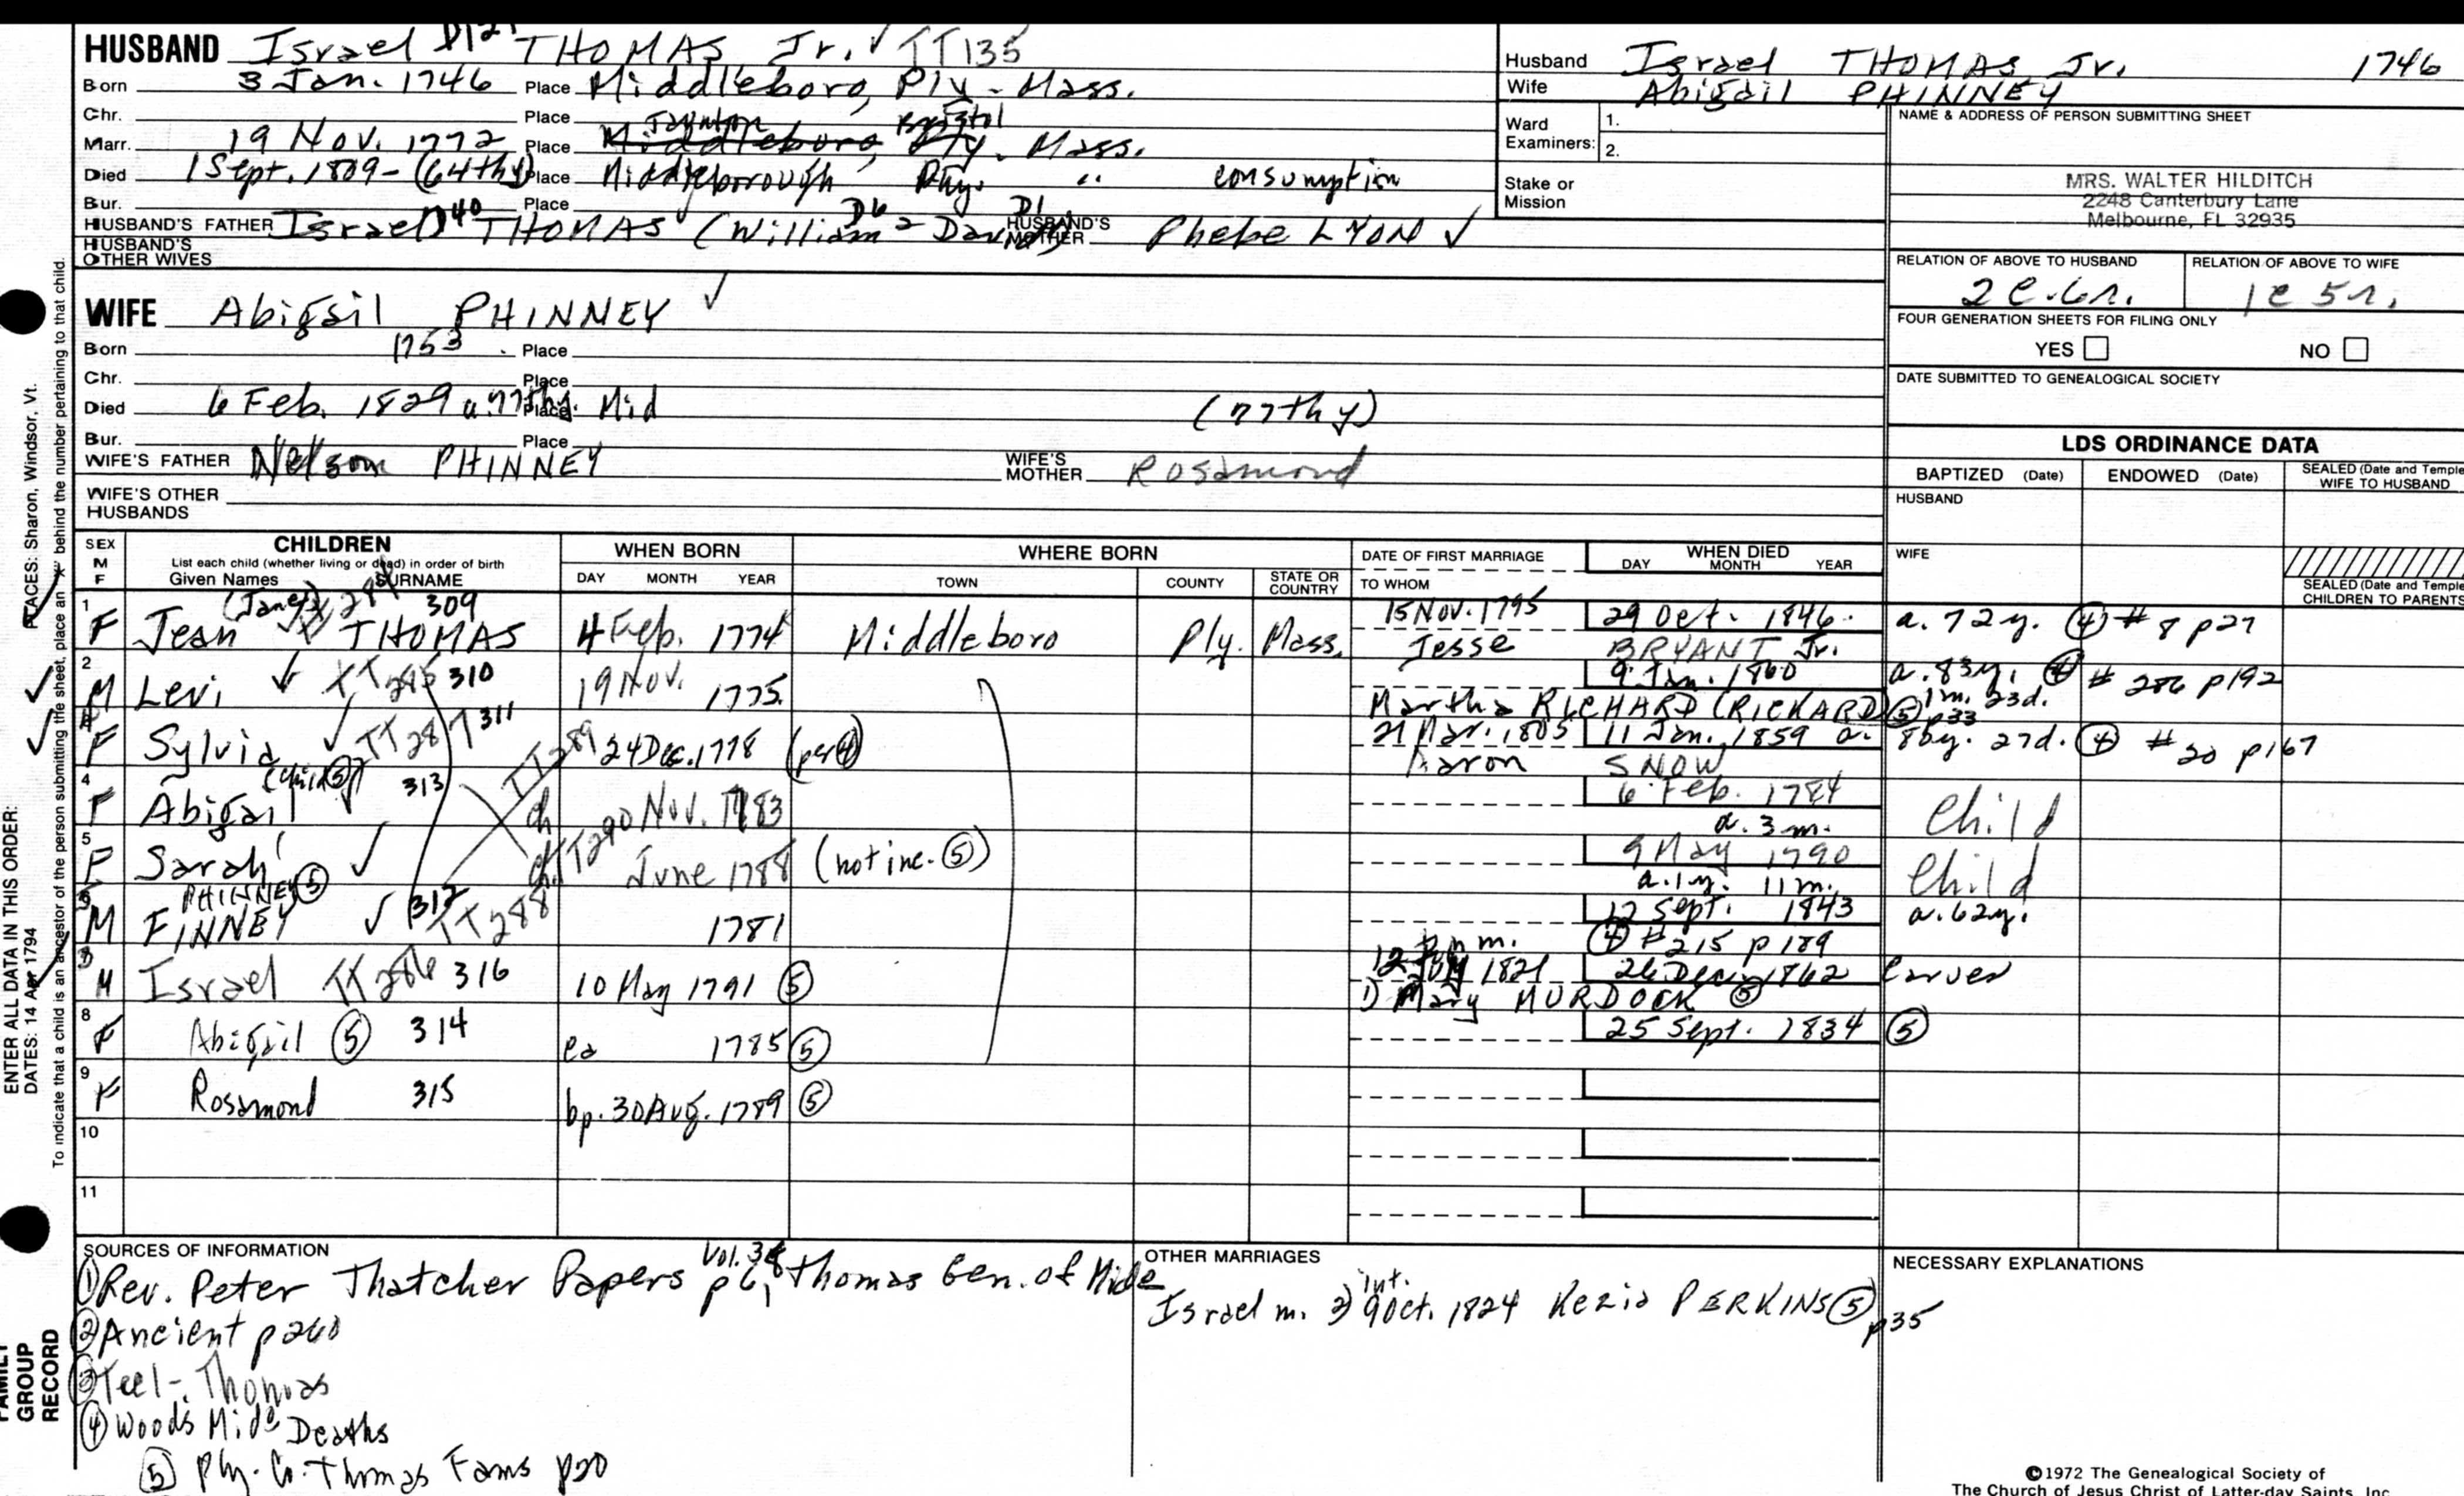 HUSBAND Israel D121 THOMAS Jr. ✓ TT135
Born 3 Jan. 1746 Place Middleboro, Ply - Mass.
Chr. Place Taunton Bristol
Marr. 19 Nov. 1772 Place Middleboro, Ply. Mass.
Died 1 Sept. 1809 - (64thy) Place Middleborough Ply. " consumption
Bur. Place
HUSBAND'S FATHER Israel D40 THOMAS (William D6 2 David D1) HUSBAND'S MOTHER Phebe LYON ✓
HUSBAND'S OTHER WIVES
Husband Israel THOMAS Jr. 1746
Wife Abigail PHINNEY
Ward Examiners: 1.
2.
Stake or Mission
NAME & ADDRESS OF PERSON SUBMITTING SHEET
MRS. WALTER HILDITCH
2248 Canterbury Lane
Melbourne, FL 32935
RELATION OF ABOVE TO HUSBAND RELATION OF ABOVE TO WIFE
2c.6r. 1c 5r.
FOUR GENERATION SHEETS FOR FILING ONLY
YES NO
DATE SUBMITTED TO GENEALOGICAL SOCIETY
WIFE Abigail PHINNEY ✓
Born 1753 Place
Chr. Place
Died 6 Feb. 1829 a. 77thy. Place Mid (77thy)
Bur. Place
WIFE'S FATHER Nelson PHINNEY WIFE'S MOTHER Rosamond
WIFE'S OTHER HUSBANDS
LDS ORDINANCE DATA
BAPTIZED (Date) ENDOWED (Date) SEALED (Date and Temple) WIFE TO HUSBAND
HUSBAND
WIFE
SEALED (Date and Temple) CHILDREN TO PARENTS
SEX M F CHILDREN WHEN BORN WHERE BORN DATE OF FIRST MARRIAGE WHEN DIED
List each child (whether living or dead) in order of birth
Given Names SURNAME DAY MONTH YEAR TOWN COUNTY STATE OR COUNTRY TO WHOM DAY MONTH YEAR
1 F Jean (Jane) THOMAS 309 4 Feb. 1774 Middleboro Ply. Mass. 15 Nov. 1795 29 Oct. 1846 a. 72y. ④ # 8 p27
Jesse BRYANT Jr.
2 M Levi ✓ 310 19 Nov. 1775 9 Jan. 1860 a. 83y. ④ # 286 p192
1m. 23d.
Martha RICHARD (RICKARD) ⑤ p33
F Sylvia ✓ TT287 311 24 Dec. 1778 (per ④) 21 Mar. 1805 11 Jan. 1859 a. 80y. 27d. ④ # 20 p167
Aaron SNOW
4 F Abigail (child ⑤) 313 TT289 ch Nov. 1783 6 Feb. 1784 Child
a. 3 m.
5 F Sarah ✓ ch. TT290 June 1788 (not inc. ⑤) 9 May 1790 Child
a. 1y. 11m.
M PHINNEY ⑤ FINNEY ✓ 312 TT288 1781 12 Sept. 1843 a. 62y.
④ #215 p189
M Israel TT286 316 10 May 1791 ⑤ 12 July 1821 26 Dec. 1862 Carver
1) Mary MURDOCK ⑤
8 F Abigail ⑤ 314 ca 1785 ⑤ 25 Sept. 1834 ⑤
9 F Rosamond 315 bp. 30 Aug. 1789 ⑤
10
11
SOURCES OF INFORMATION
① Rev. Peter Thatcher Papers p6, Thomas Gen. of Mide
② Ancient p260
③ Teel - Thomas
④ Wood's Mido Deaths
⑤ Ply. Co. Thomas Fams p20
OTHER MARRIAGES
Israel m. 2) int. 9 Oct. 1824 Kezia PERKINS ⑤ p35
NECESSARY EXPLANATIONS
©1972 The Genealogical Society of
The Church of Jesus Christ of Latter-day Saints, Inc.
ENTER ALL DATA IN THIS ORDER:
DATES: 14 Apr 1794
PLACES: Sharon, Windsor, Vt.
To indicate that a child is an ancestor of the person submitting the sheet, place an "X" behind the number pertaining to that child.
FAMILY
GROUP
RECORD